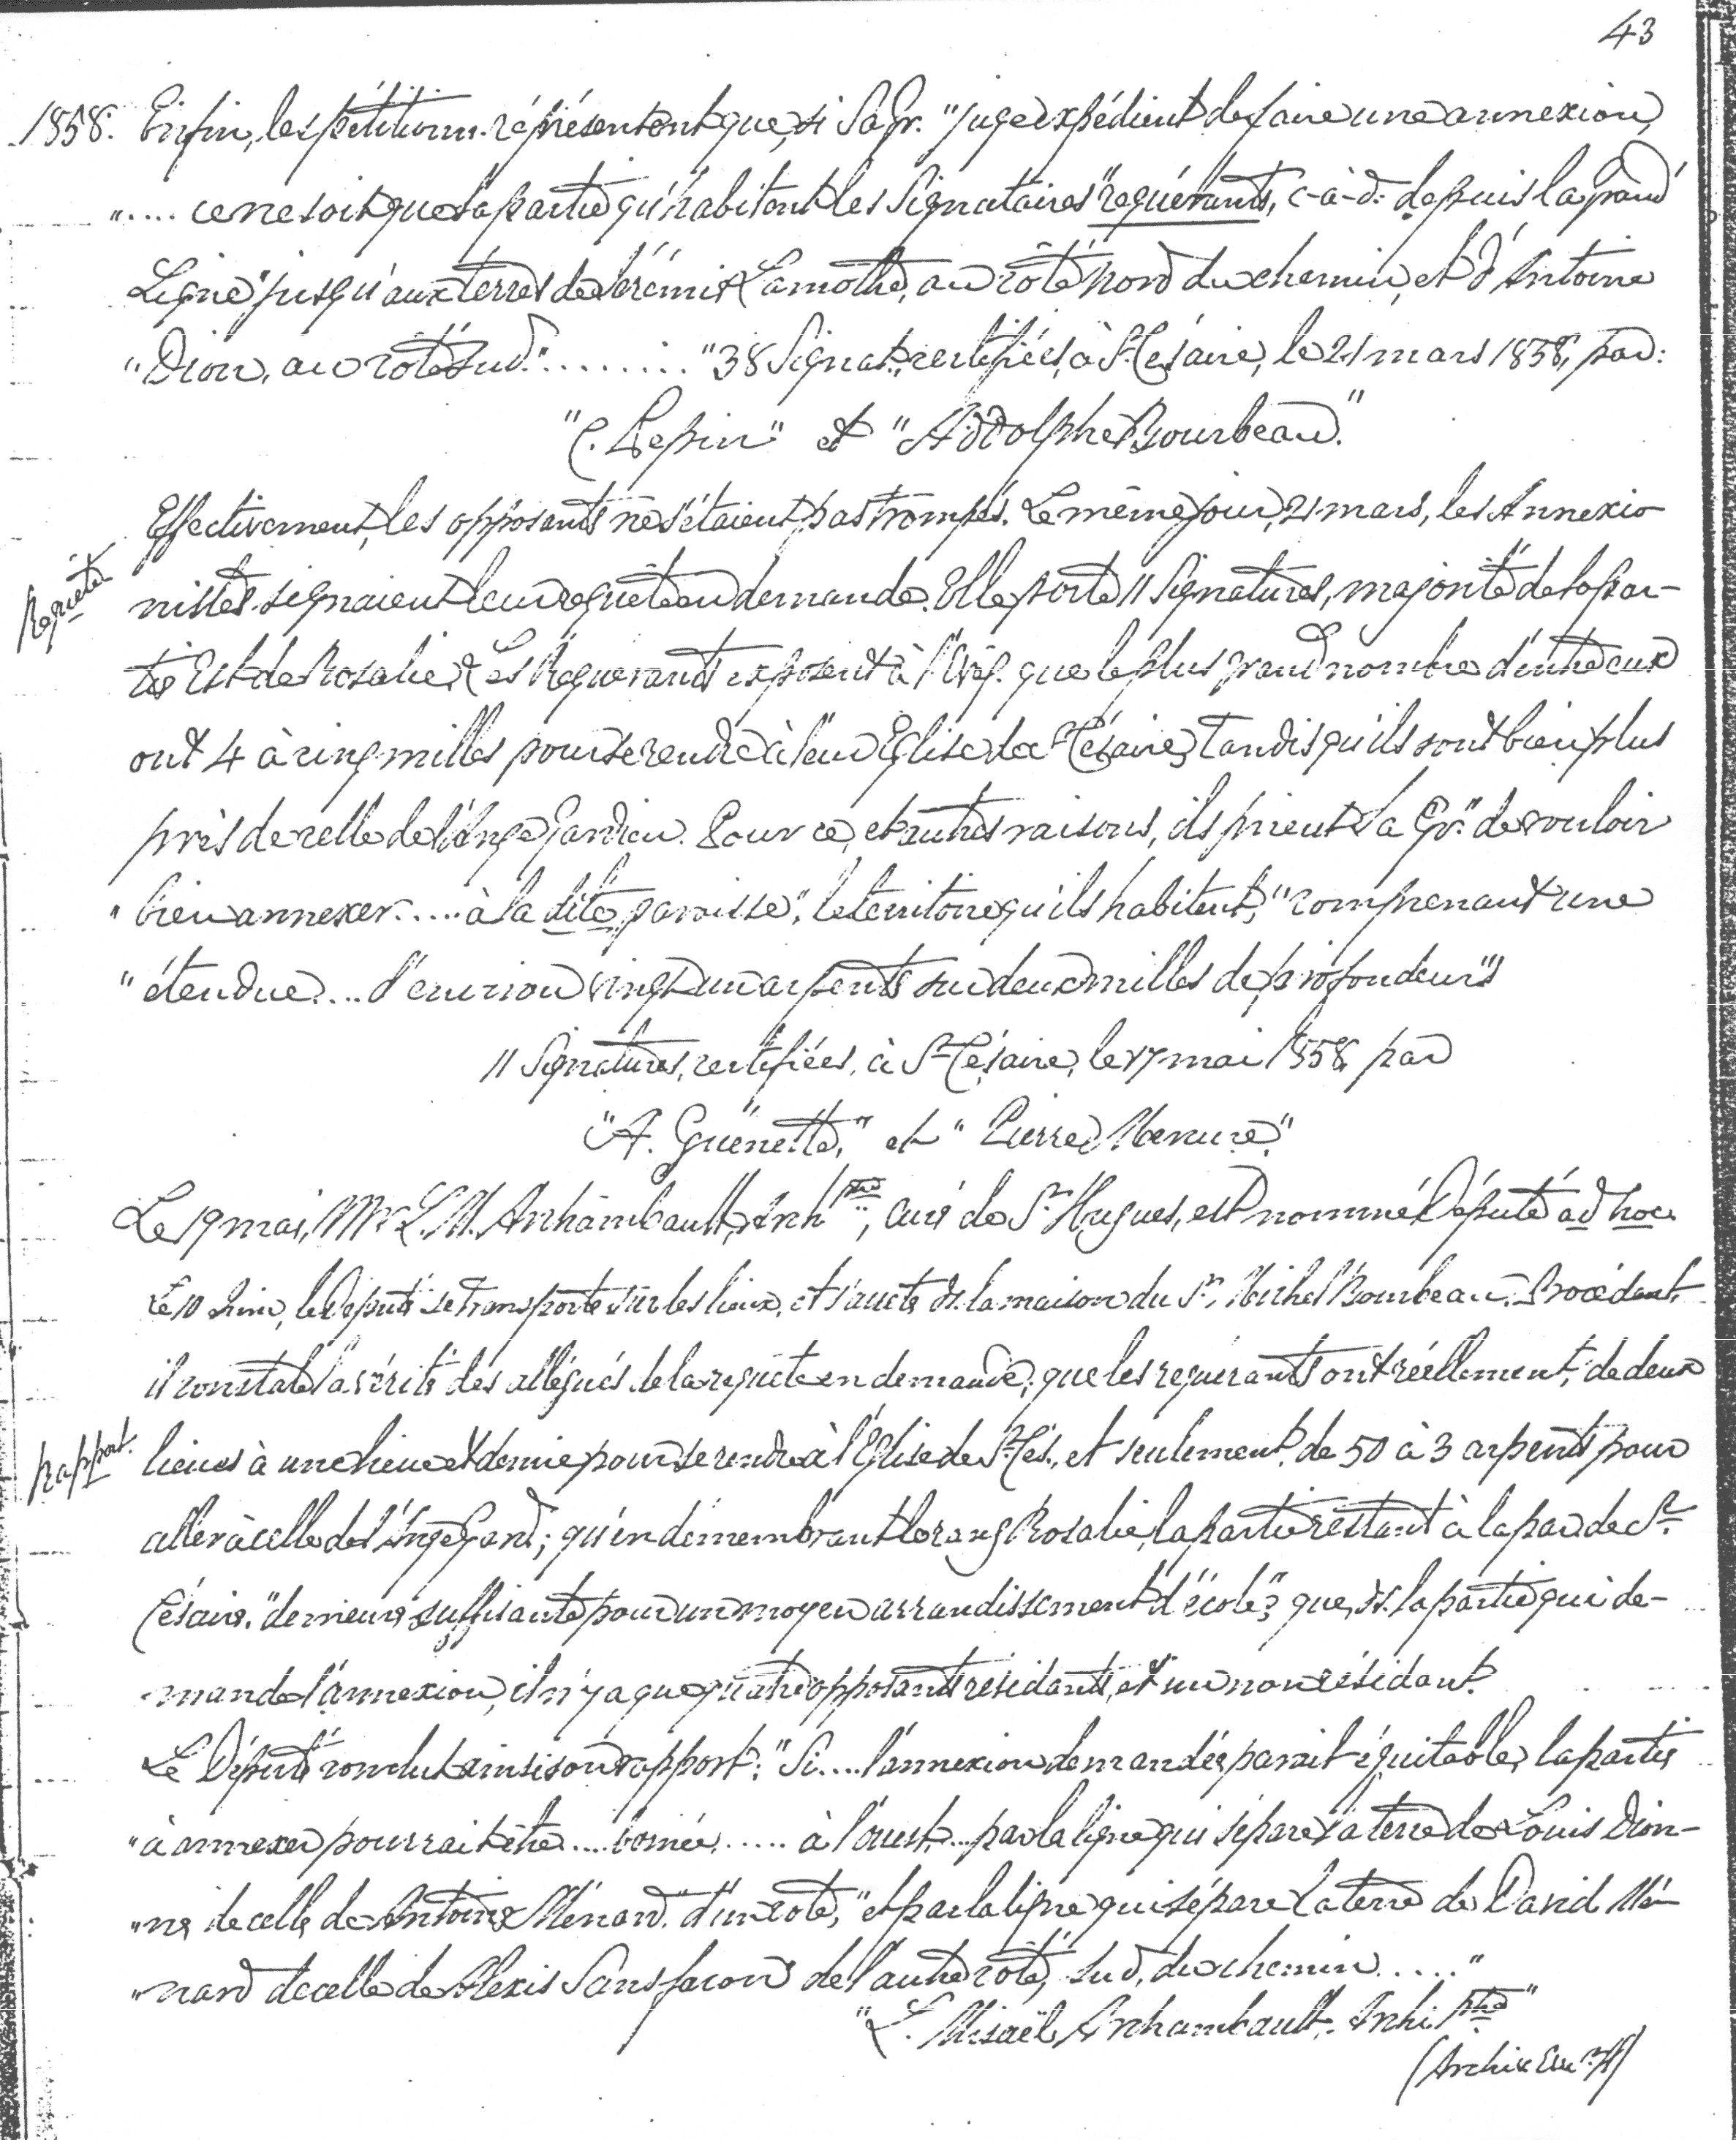 43
1858. Enfin, les pétitionn. représentent que, si Sa Gr. "juge expédient de faire une annexion,
"..... ce ne soit que la partie qu'habitent les Signataires" requérants, c-à-d. depuis la "Grand
Ligne" jusqu'aux terres de Jérémie Lamothe, au côté nord du chemin, et d'Antoine
"Dion, au côté Sud." ......... "38 Signat. certifiées, à St Césaire, le 21 mars 1858, par:
"C. Pepin" et "Addolphe Bourbeau."
Effectivement, les opposants ne s'étaient pas trompés. Le même jour, 21 mars, les Annexio-
Requête
nistes signaient leur requête en demande. Elle porte 11 Signatures, majorité de la par-
tie Est de Rosalie. Les Requerants exposent à l'Evêq. que le plus grand nombre d'entre eux
ont 4 à cinq milles pour se rendre à leur Eglise de St Césaire, tandis qu'ils sont bien plus
près de celle de l'Ange Gardien. Pour ce, et autres raisons, ils prient Sa Gr. "de vouloir
"bien annexer..... à la dite paroisse", le territoire qu'ils habitent, "comprenant une
"étendue.... d'environ vingt-un arpents sur deux milles de profondeur"
11 Signatures, certifiées, à St Césaire, le 17 mai 1858, par
"A. Guënette," et "Pierre Menure."
Le 19 mai, Mr L. M. Archambault, Archiptre, curé de St Hugues, est nommé Député ad hoc.
Le 10 Juin, le Député se transporte sur les lieux, et s'arrête ds. la maison du Sr. Michel Bourbeau. Procédant,
il constate la vérité des allégués de la requête en demande; que les requérants ont réellement, de deux
Rapport.
lieues à une lieue et demie pour se rendre à l'Eglise de St Cés., et seulement. de 50 à 3 arpents pour
aller à celle de l'Ange Gard.; qu'en démembrant le rang Rosalie, la partie restant à la par. de St
Césaire, "demeure suffisante pour un moyen arrondissement d'école"; que, ds. la partie qui de-
mande l'annexion, il n'y a que quatre opposants résidants, et un non résidant.
Le Député conclut ainsi son rapport: "Si.... l'annexion demandée parait équitable, la partie
"à annexer pourrait être.... bornée...... à l'ouest.... par la ligne qui sépare la terre de Louis Dion-
"ne de celle de Antoine Ménard." d'un coté, "et par la ligne qui sépare la terre de David Mé-
"nard de celle de Alexis Sansfacon de l'autre coté, Sud, du chemin....."
"L. Misaël Archambault, Archi Ptre"